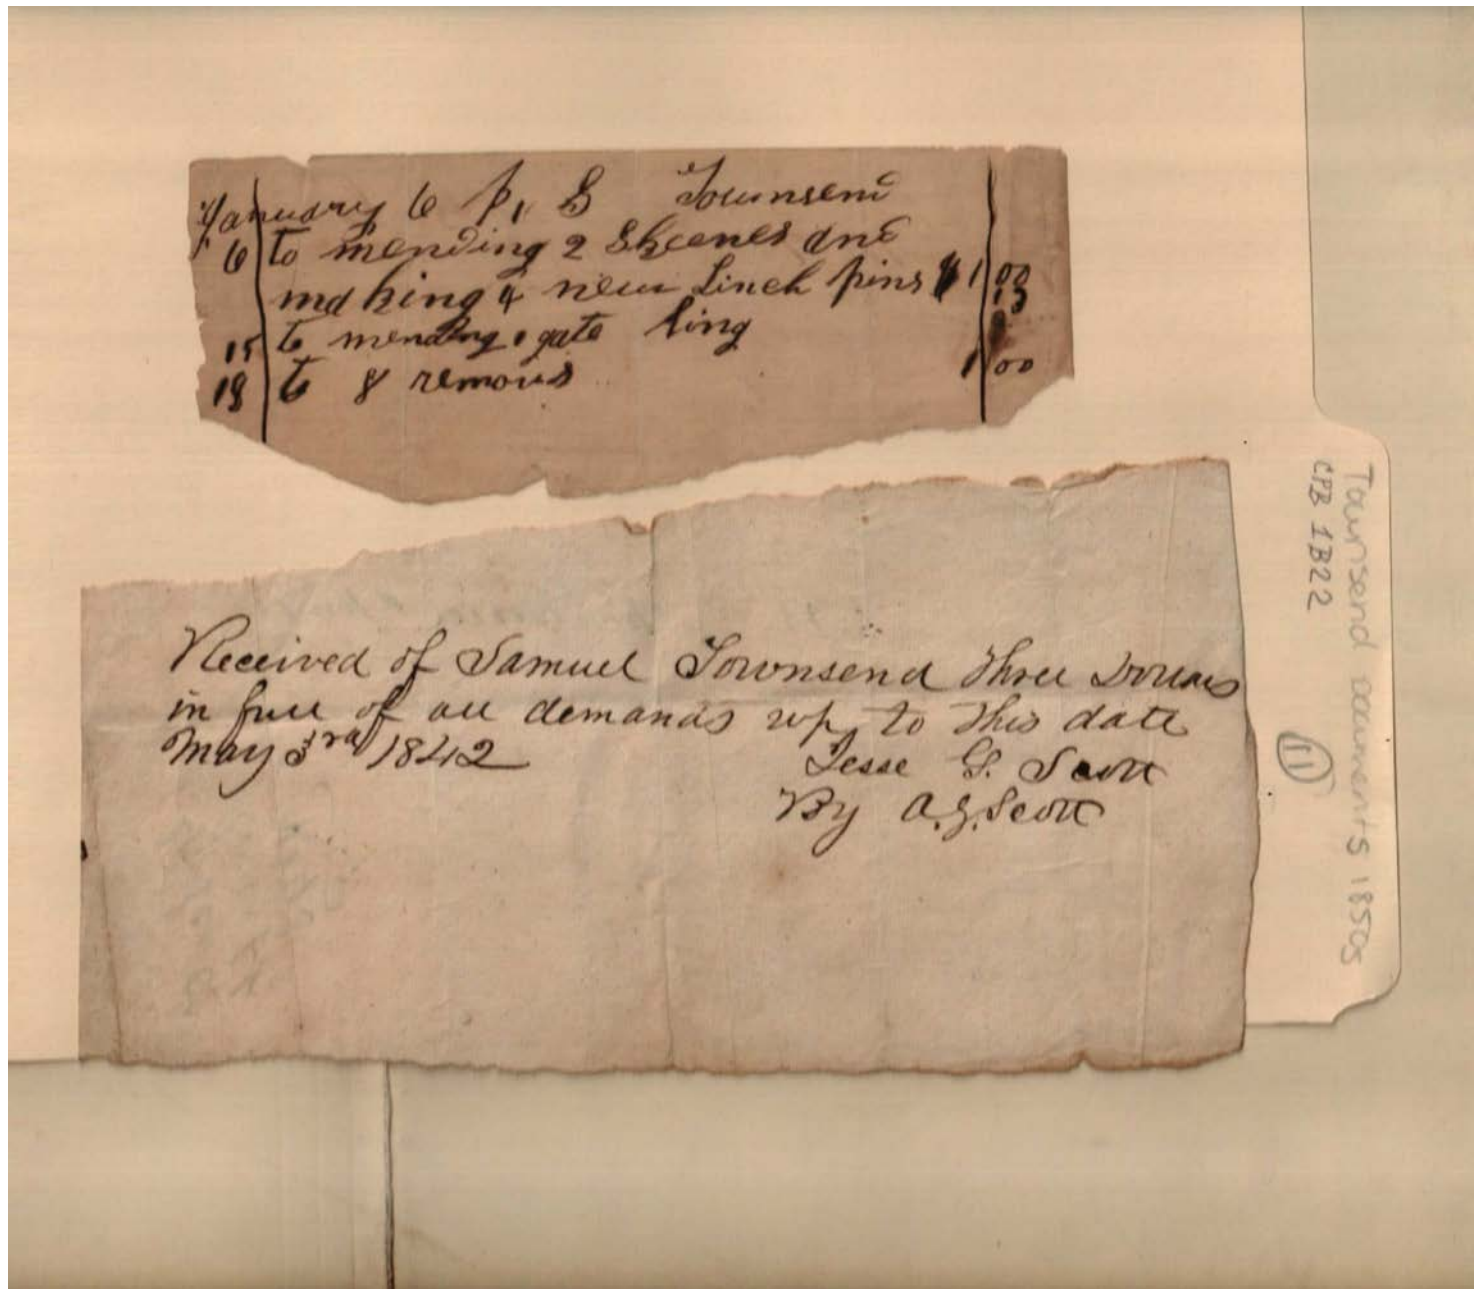 January 6 P, S Townsend
6 to mending 2 Skeenes and
making 4 new Linch pins $1 00
15 to mending 1 gate hing 13
18 to 8 removs 1 00
Received of Samuel Townsend Three Dollars
in full of all demands up to this date
May 3rd 1842
Jesse G. Scott
By A. G. Scott
Townsend documents 1850s
CPB 1B22
11